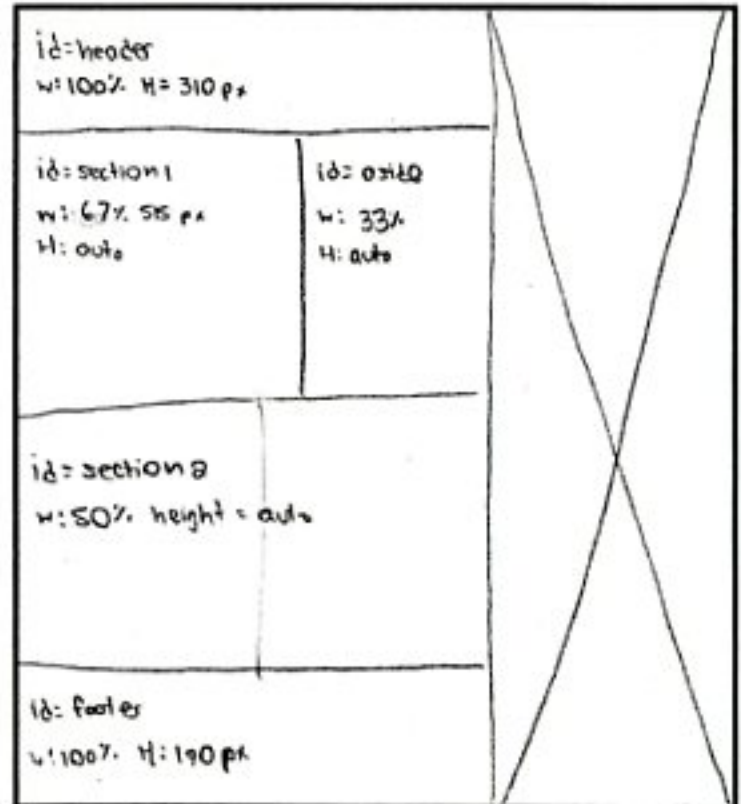 id=header
w:100% H=310px
id=section1
w: 67% 515 px
H: auto
id=aside
w: 33%
H: auto
id=section2
w:50% height = auto
id=footer
w:100% H:190px